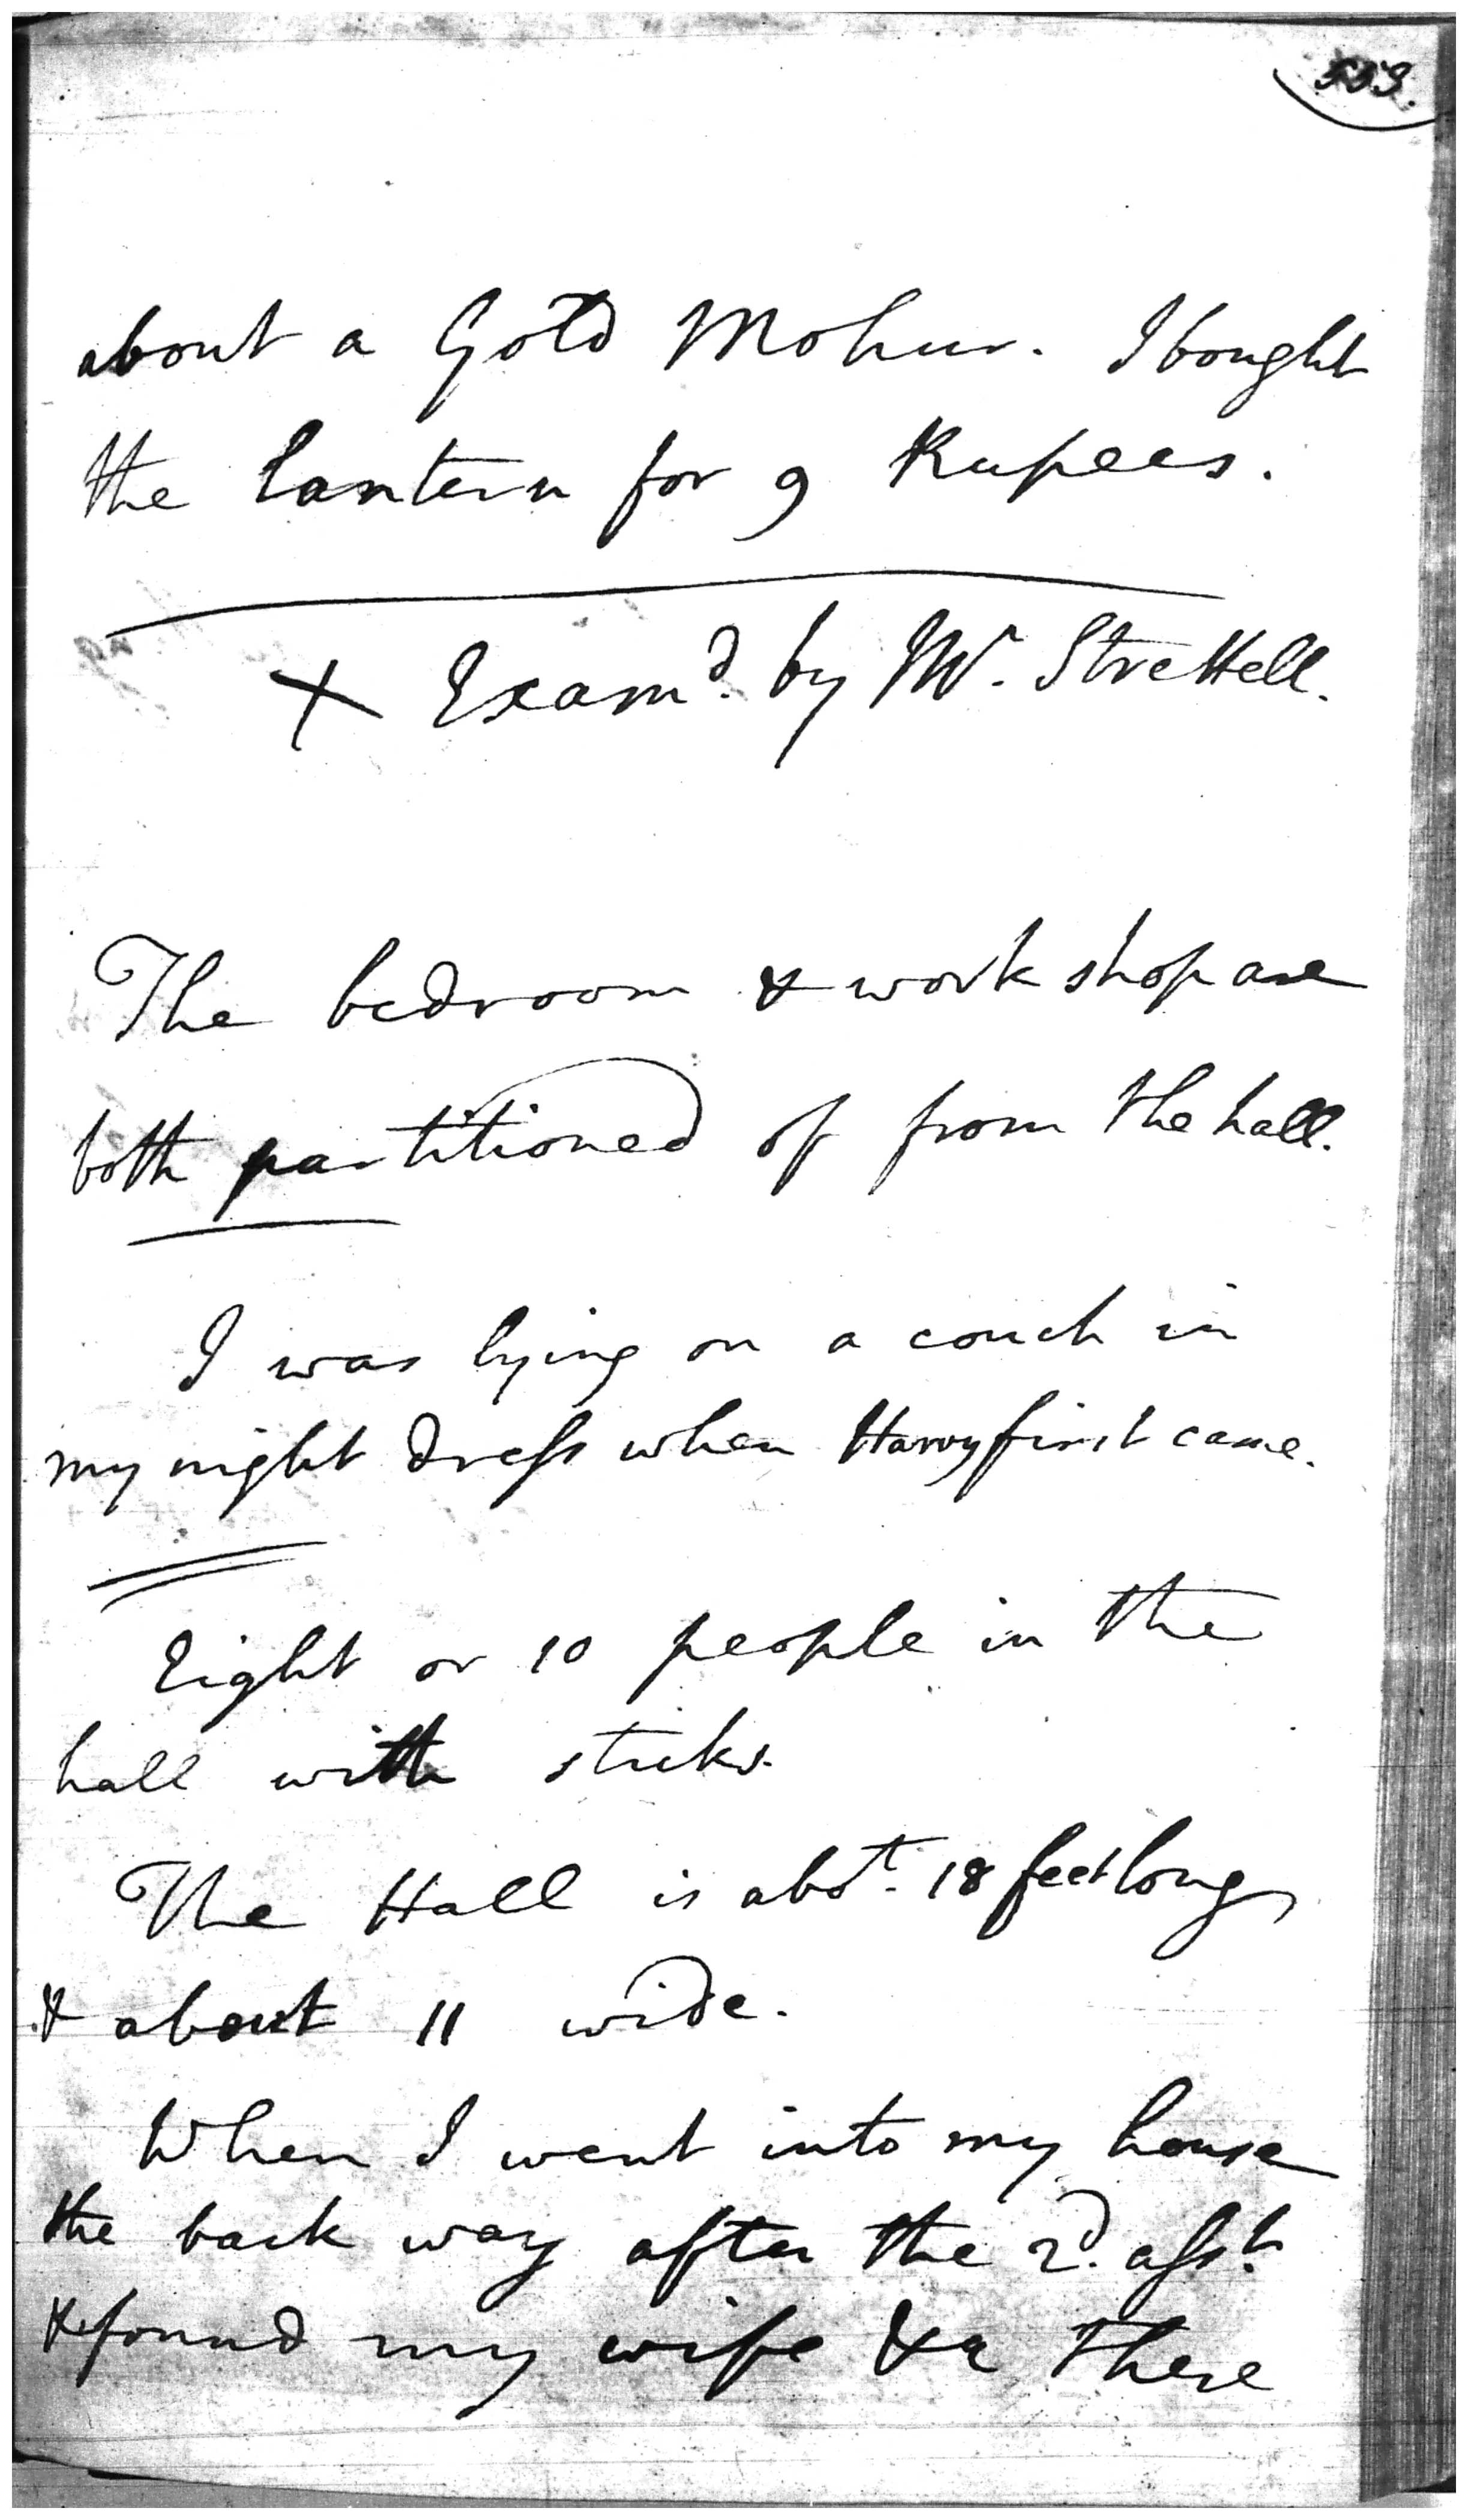 about a Gold Mohur. I bought
the lantern for 9 Rupees.
X Examd. by Mr. Strettell.
The bedroom & work shop are
both partitioned of from the hall.
I was lying on a couch in
my night dress when Harvy first came.
Eight or 10 people in the
hall with sticks.
The Hall is abot. 18 feet long
& about 11 wide.
When I went into my house
the back way after the 2d. asst.
& found my wife &a there